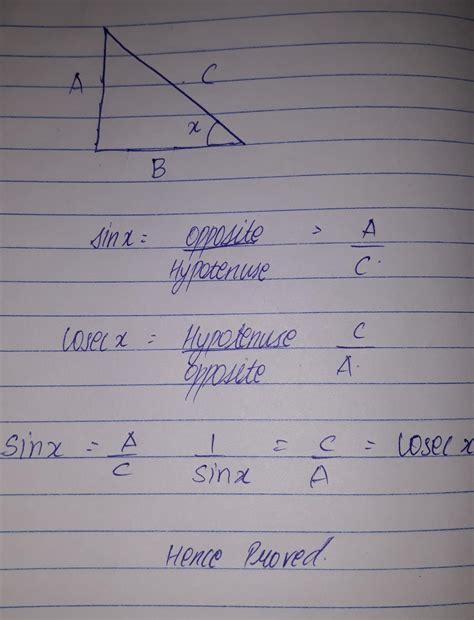 A
C
x
B
sinx = Opposite / Hypotenuse = A / C.
Cosec x = Hypotenuse / Opposite C / A.
Sinx = A / C 1 / sinx = C / A = Cosec x
Hence Proved.